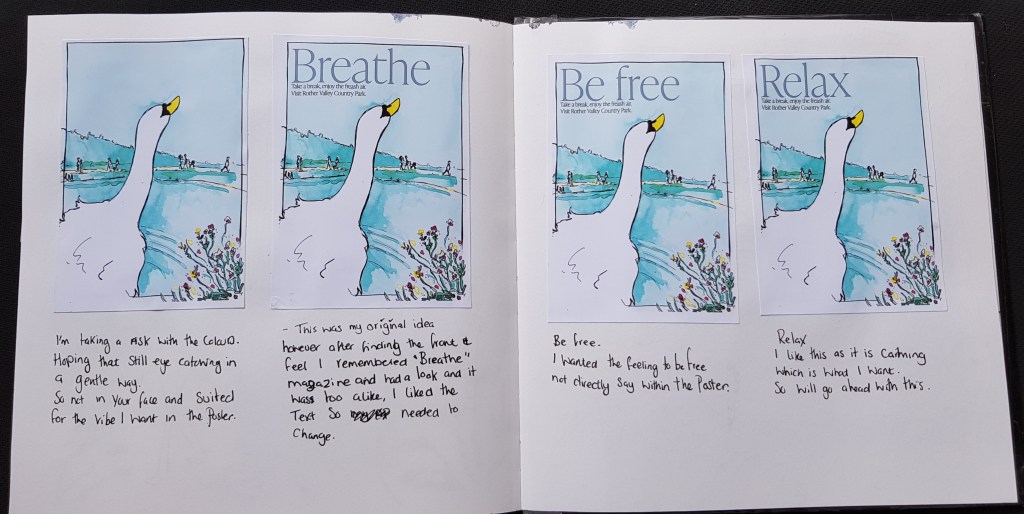 Breathe
Take a break, enjoy the freash air.
Visit Rother Valley Country Park.
I'm taking a RISK with the Colour.
Hoping that Still eye catching in
a gentle way.
So not in your face and Suited
for the vibe I want in the Poster.
- This was my original idea
however after finding the front &
feel I remembered "Breathe"
magazine and had a look and it
was too alike, I liked the
Text So needed to
Change.
Be free
Take a break, enjoy the freash air.
Visit Rother Valley Country Park.
Be free.
I wanted the feeling to be free
not directly Say within the Poster.
Relax
Take a break, enjoy the freash air.
Visit Rother Valley Country Park.
Relax
I like this as it is Calming
which is what I want.
So will go ahead with this.